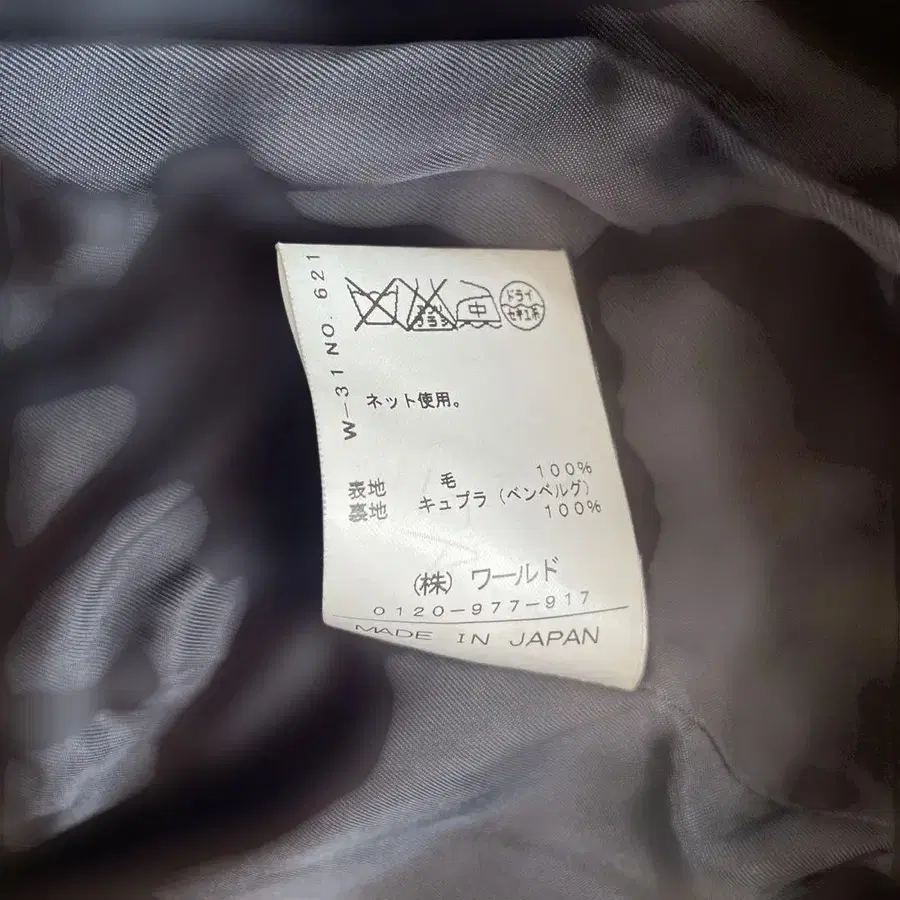 W-31 NO. 621
中
ドライ
セキユ系
ネット使用。
表地 毛 100%
裏地 キュプラ(ベンベルグ)
100%
(株) ワールド
0120-977-917
MADE IN JAPAN